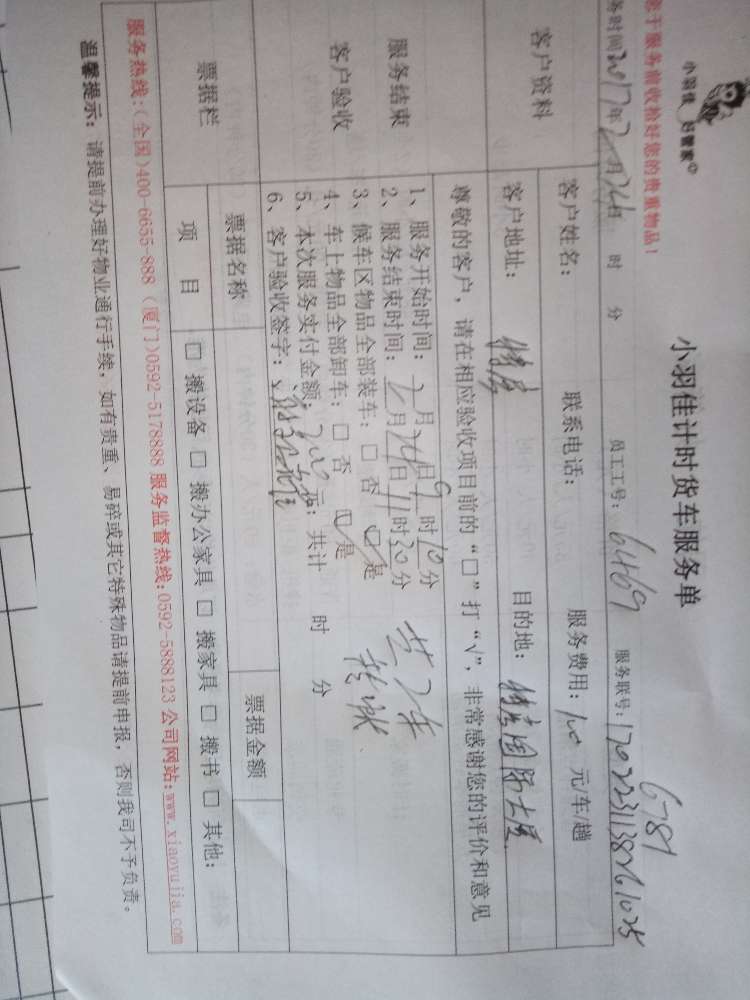 小羽佳 好管家
小羽佳计时货车服务单
6789
于服务前收拾好您的贵重物品！
务时间2017年2月24日 时 分 员工工号：6469 服务联号：
客户资料
客户姓名： 联系电话： 服务费用：100 元/车/趟
客户地址： 目的地：国际大厦
服务结束
客户验收
尊敬的客户，请在相应验收项目前的“□”打“√”，非常感谢您的评价和意见
1、服务开始时间：2月24日9时10分
2、服务结束时间：2月24日11时30分 共2车
3、候车区物品全部装车：□ 否 ☑ 是
4、车上物品全部卸车：□ 否 ☑ 是
5、本次服务实付金额：200元；共计 时 分
6、客户验收签字：
票据栏 票据名称 票据金额
项 目 □ 搬设备 □ 搬办公家具 □ 搬家具 □ 搬书 □ 其他：
服务热线：（全国）400-6655-888 （厦门）0592-5178888 服务监督热线：0592-5888123 公司网站：www.xiaoyujia.com
温馨提示：请提前办理好物业通行手续，如有贵重、易碎或其它特殊物品请提前申报，否则我司不予负责。